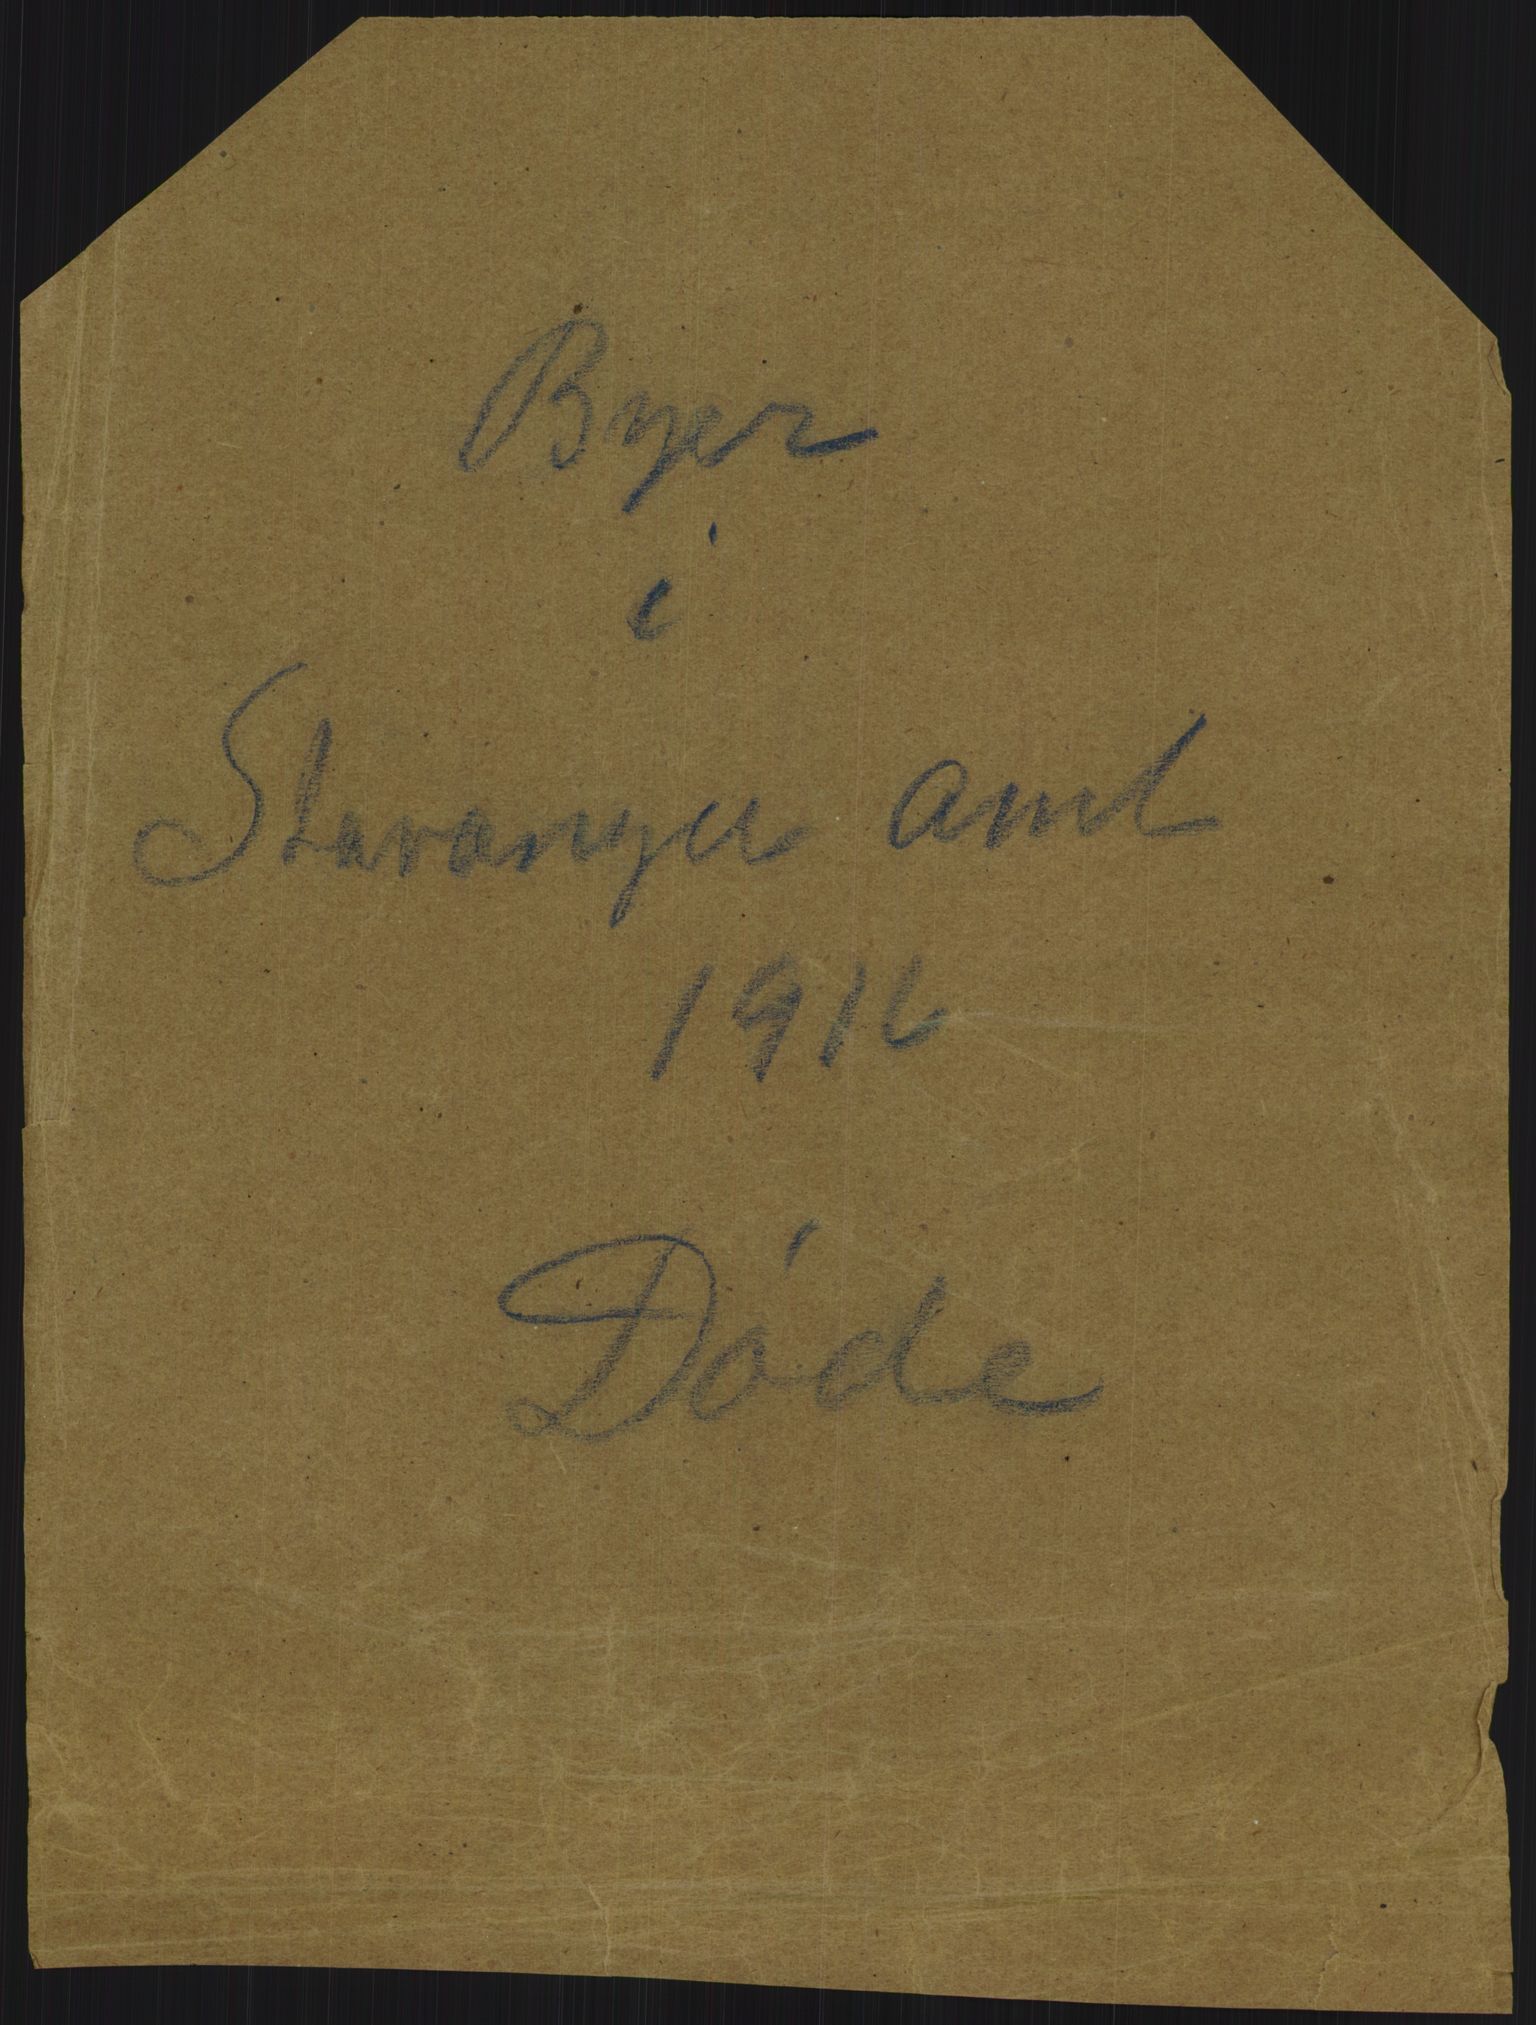 Byer
i
Stavanger amt
1916
Døde